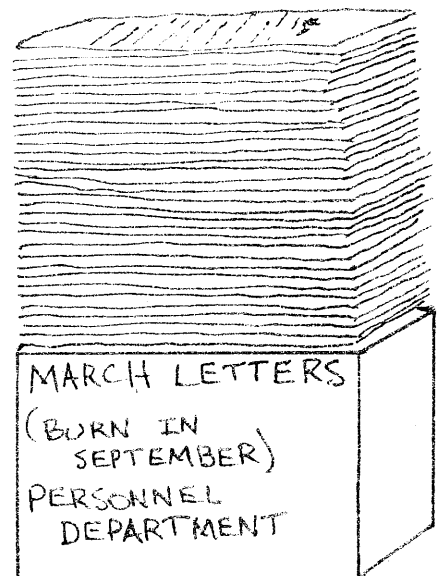 MARCH LETTERS
(BURN IN
SEPTEMBER)
PERSONNEL
DEPARTMENT